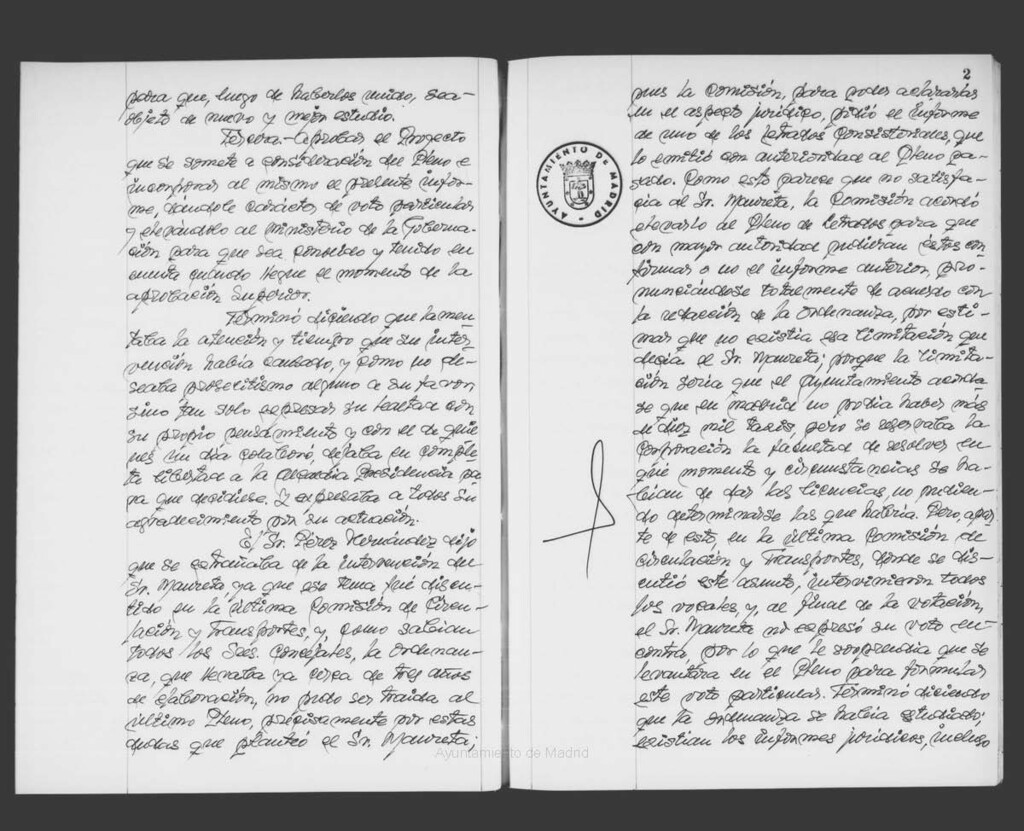 para que, luego de haberlos unido, sea
objeto de nuevo y mejor estudio.
Tercera.- Aprobar el Proyecto
que se somete a consideración del Pleno e
incorporar al mismo el presente infor-
me, dándole carácter de voto particular
y elevándolo al Ministerio de la Goberna-
ción para que sea conocido y tenido en
cuenta cuando llegue el momento de la
aprobación superior.
Terminó diciendo que lamen-
taba la atención y tiempo que su inter-
vención había causado, y como no de-
seaba proselitismo alguno a su favor
sino tan solo expresar su lealtad con
su propio pensamiento y con el de quie-
nes un día colaboró, dejaba en comple-
ta libertad a la Alcaldía Presidencia pa
ra que decidiese. Y expresaba a todos su
agradecimiento por su actuación.
El Sr. Pérez Hernández dijo
que se extrañaba de la intervención del
Sr. Maureta, ya que ese tema fué discu-
tido en la última Comisión de Circu-
lación y Transportes, y, como sabían
todos los Sres. Concejales, la Ordenan-
za, que llevaba ya cerca de tres años
de elaboración, no pudo ser traída al
último Pleno, precisamente por estas
dudas que planteó el Sr. Maureta;
2
pues la Comisión, para poder aclararlas
en el aspecto jurídico, pidió el informe
de uno de los Letrados Consistoriales, que
lo emitió con anterioridad al Pleno pa-
sado. Como esto parece que no satisfa-
cía al Sr. Maureta, la Comisión acordó
elevarlo al Pleno de Letrados para que
con mayor autoridad pudieran éstos con
firmar o no el informe anterior, pro-
nunciándose totalmente de acuerdo con
la redacción de la Ordenanza, por esti-
mar que no existía esa limitación que
decía el Sr. Maureta; porque la limita-
ción sería que el Ayuntamiento acorda-
se que en Madrid no podía haber más
de diez mil taxis, pero se reservaba la
Corporación la facultad de resolver en
qué momento y circunstancias se ha-
bían de dar las licencias, no pudien-
do determinarse las que habría. Pero, apar
te de esto, en la última Comisión de
Circulación y Transportes, donde se dis-
cutió este asunto, intervinieron todos
los vocales, y, al final de la votación,
el Sr. Maureta no expresó su voto en
contra, por lo que le sorprendía que se
levantara en el Pleno para formular
este voto particular. Terminó diciendo
que la ordenanza se había estudiado;
existían los informes jurídicos, incluso
AYUNTAMIENTO DE MADRID
Ayuntamiento de Madrid